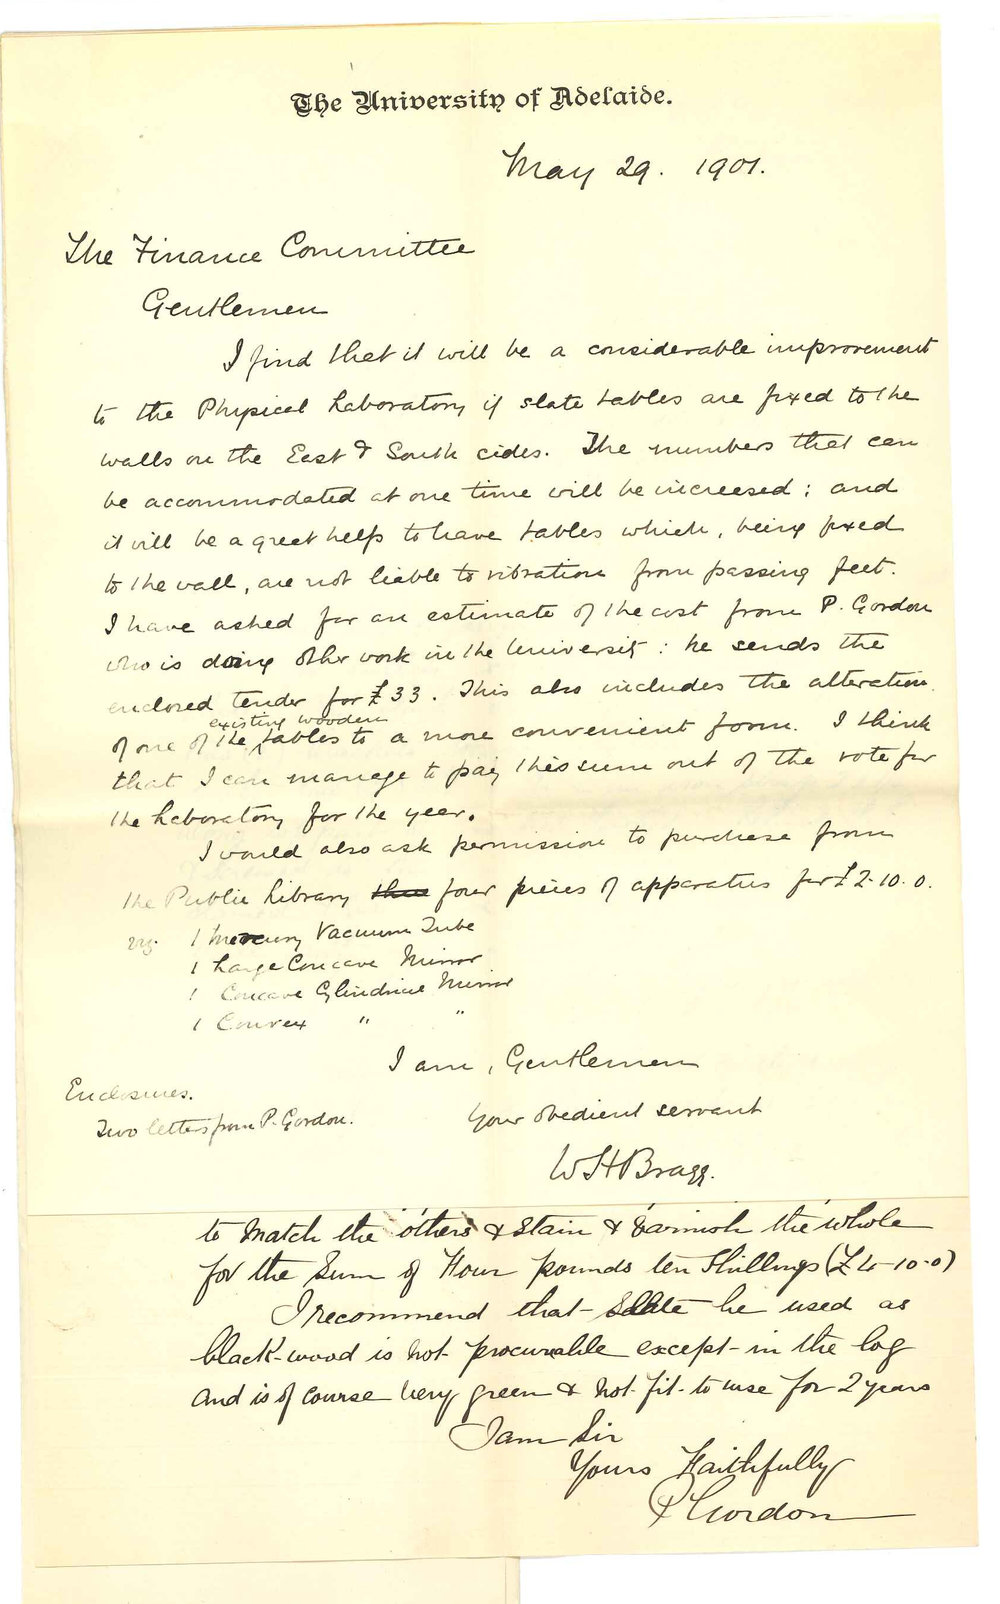 The University of Adelaide.
May 29. 1901.
The Finance Committee
Gentlemen
I find that it will be a considerable improvement
to the Physical Laboratory if slate tables are fixed to the
walls on the East & South sides. The numbers that can
be accommodated at one time will be increased; and
it will be a great help to have tables which, being fixed
to the wall, are not liable to vibration from passing feet.
I have asked for an estimate of the cost from P. Gordon
who is doing other work in the University: he sends the
enclosed tender for £33. This also includes the alteration
existing wooden
of one of the tables to a more convenient form. I think
that I can manage to pay this sum out of the vote for
the Laboratory for the year.
I would also ask permission to purchase from
the Public Library four pieces of apparatus for £2-10.0.
viz. 1 Mercury Vacuum Tube
1 Large Concave Mirror
1 Concave Cylindrical Mirror
1 Convex " "
I am, Gentlemen
Enclosures.
Your obedient servant
Two letters from P. Gordon.
WHBragg.
to Match the others & Stain & Varnish the whole
for the Sum of Four pounds ten Shillings (£4-10-0)
I recommend that Slate be used as
black-wood is not procurable except in the log
and is of course very green & not fit to use for 2 years
I am Sir
Yours Faithfully
P Gordon